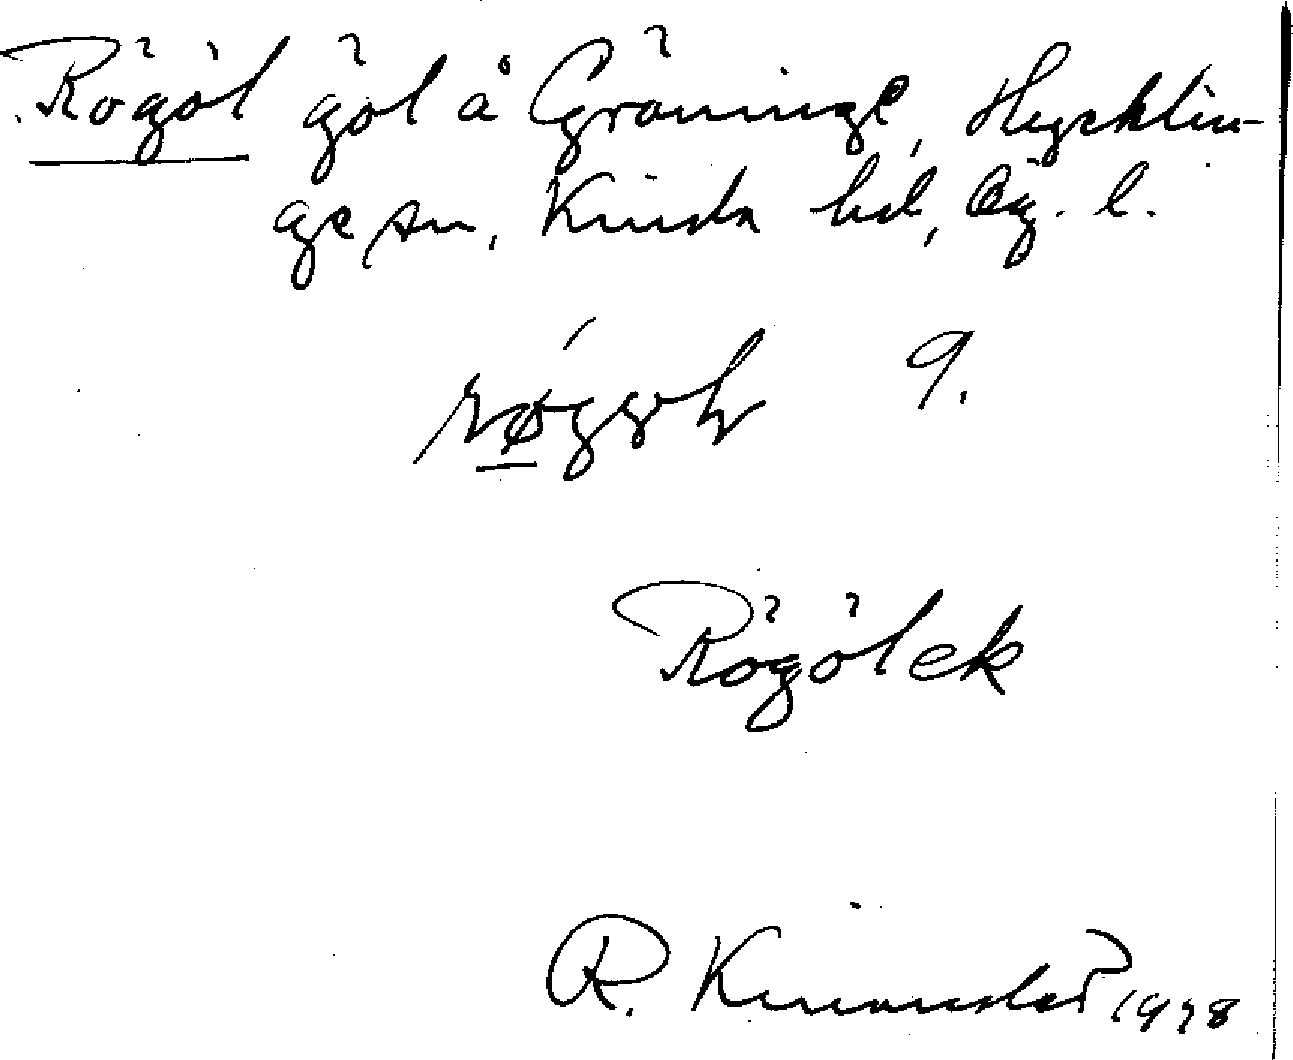 Rögöl göl å Gröninge, Hycklin-
ge sn, Kinda hd, Ög. l.
9.
Rögölek
R. Kinander 1978